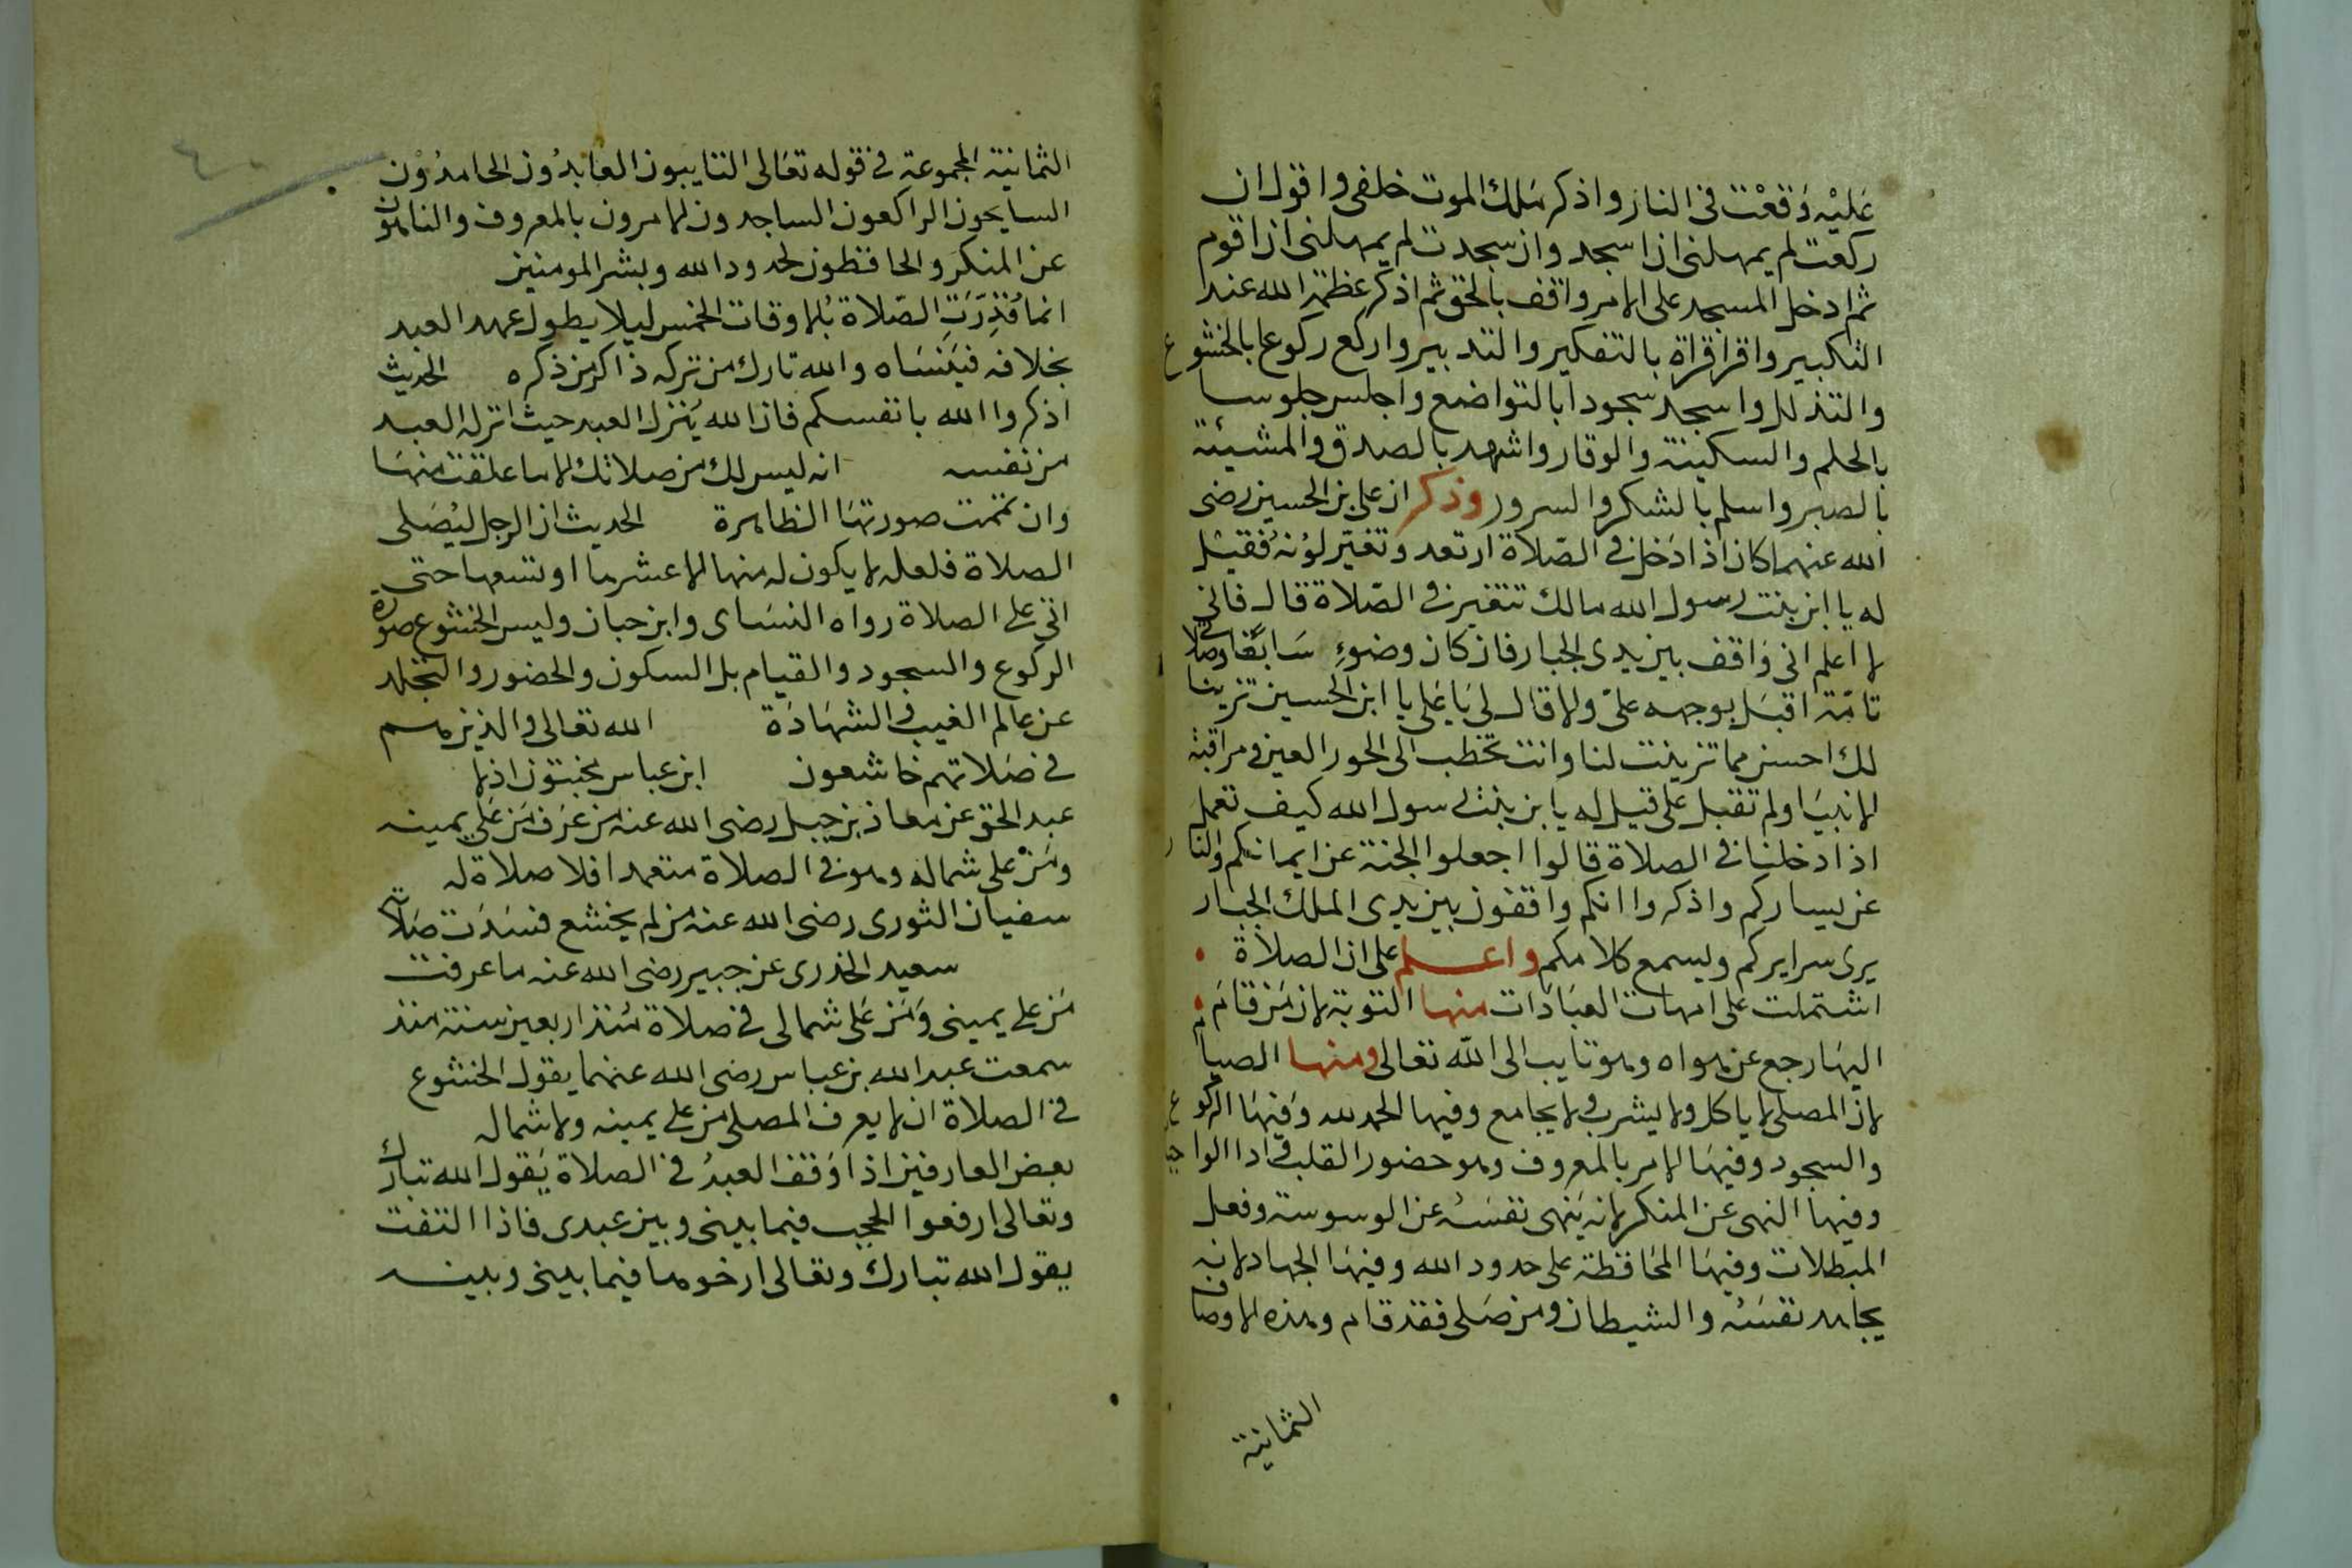 عَليْه وَقعْت فى النار واذكر مَلك الموت خلفى واقول ان
ركعت لم يمهلنى ان اسجد وان سجدت لم يمهلنى ان اقوم
ثم ادخل المسجد على الامر واقف بالحق ثم اذكر عظمة الله عند
التكبير واقرا قراة بالتفكير والتدبير واركع ركوعا بالخشوع
والتذلل واسجد سجودا بالتواضع واجلس جلوسا
بالحلم والسكينة والوقار واشهد بالصدق والمشيئة
بالصبر واسلم بالشكر والسرور وذكر ان على بن الحسين رضى
الله عنهما كان اذا دَخل فى الصّلاة ارتعد وتغيّر لوْنهُ فقيْل
له يا ابن بنت رسول الله مالك تتغير فى الصّلاة قال فانى
لا اعلم انى وَاقف بين يدى الجبار فان كان وضوءِ سَابغًا وصلاتى
تامّة اقبَل بوجهه علىّ ولا قال لى يَا عَلى يا ابن الحسين تزينا
لك احسن مما تزينت لنا وانت تخطب الى الحور العين ومراقبة
الانبيَا ولم تقبل على قيل له يا بن بنت رسول الله كيف تعمل
اذا دخلنا فى الصلاة قالوا اجعلوا الجنة عن ايمانكم والنار
عن يساركم واذكروا انكم واقفون بين يدى الملك الجبار
يرى سرايركم ويسمع كلامكم واعلم على ان الصلاة
اشتملت على امهات العبَادَات منها التوبة لان مَن قامَ
اليهَا رجع عن هواه وهو تايب الى الله تعالى ومنها الصيام
لان المصلى لا ياكل ولا يشرب ولا يجامع وفيها الحمد لله وَفيهَا الركوع
والسجود وفيهَا الامر بالمعروف وهو حضور القلب فى ادا الواجبا
وفيها النهى عن المنكر لانه يَنهى نفسَهُ عن الوسوسة وفعل
المبطلات وفيهَا المحَافظة على حدود الله وفيهَا الجهاد لانه
يجاهد نفسَهُ والشيطان ومن صَلى فقد قام وهذه الاوصاف
الثمانية
٤٠
الثمانية المجموعة فى قوله تعَالى التايبون العَابدُون الحامدُوْن
السايحون الراكعون الساجدون الامرون بالمعروف والناهون
عن المنكرَ والحافظون لحدود الله وبشر المومنين
انما قُدِّرَتِ الصّلاة بُالاوقات الخمس ليلا يطول عهد العبد
بخلافه فيَنسَاه والله تارك من تركه ذاكر من ذكره الحديث
اذكروا الله بانفسكم فان الله يُنزل العبد حيث انزله العبد
من نفسه انه ليس لك من صلاتك الا ما علقت منهَا
وان تممت صورتهَا الظاهرة الحديث ان الرجل ليُصَلى
الصلاة فلعله لا يكون له منها الا عشرها او تسعها حتى
اتى على الصلاة رواه النسَاى وابن حبان وليس الخشوع صورة
الركوع والسجود والقيام بل السكون والحضور والتجلد
عن عالم الغيب والشهَادَة الله تعالى والذين هم
فى صَلاتهم خاشعون ابن عباس مخبتون اذلا
عبد الحق عن معاذ بن جبل رضى الله عنه من عَرف مَن عَلى يمينه
ومَنْ على شماله وهو فى الصلاة متعمدا فلا صلاة له
سفيان الثورى رضى الله عنه من لم يخشع فسَدَت صَلاته
سعيد الخدرى عن جبير رضى الله عنه ما عرفت
مَن على يمينى وَمَن عَلى شمالى فى صَلاة مُنذ اربعين سنة منذ
سمعت عبد الله بن عباس رضى الله عنهما يقول الخشوع
فى الصلاة ان لا يعرف المصلى من على يمينه ولا شماله
بعض العارفين اذا وَقف العبدُ فى الصلاة يَقول الله تبارك
وتعالى ارفعوا الحجب فيما بينى وبين عبدى فاذا التفت
يقول الله تبارك وتعالى ارخوها فيما بينى وبينه